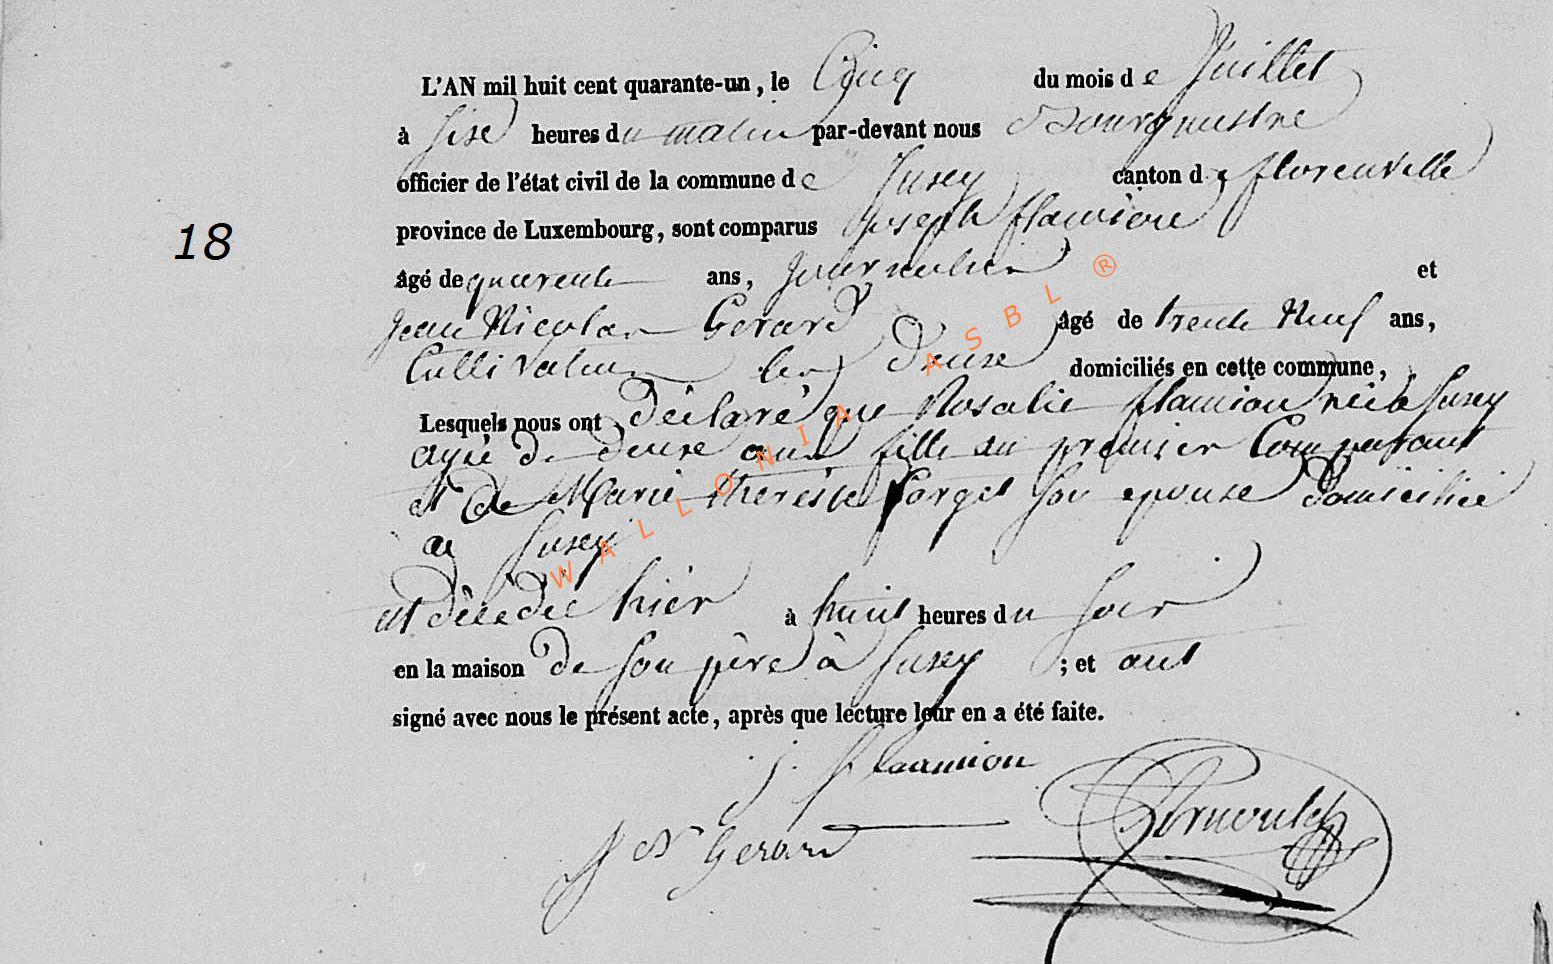 18
L'AN mil huit cent quarante-un, le Cinq du mois de Juillet
à sise heures du matin par-devant nous Bourgmestre
officier de l'état civil de la commune de Jusey canton de florenville
province de Luxembourg, sont comparus Joseph flamion
âgé de quarente ans, journalier et
Jean Nicolas Gerard âgé de trente Neuf ans,
Cultivateur les deuse domiciliés en cette commune,
Lesquels nous ont déclaré que Rosalie flamion née a Jusey
agée de deuse ans fille du premier Comparant
et de Marie therese Forget son epouse domicilié
a Jusey
et décédée hier à huit heures du soir
en la maison de son père à Jusey ; et ont
signé avec nous le présent acte, après que lecture leur en a été faite.
J. flamion
J N Gerard
WALLONIA ASBL ®